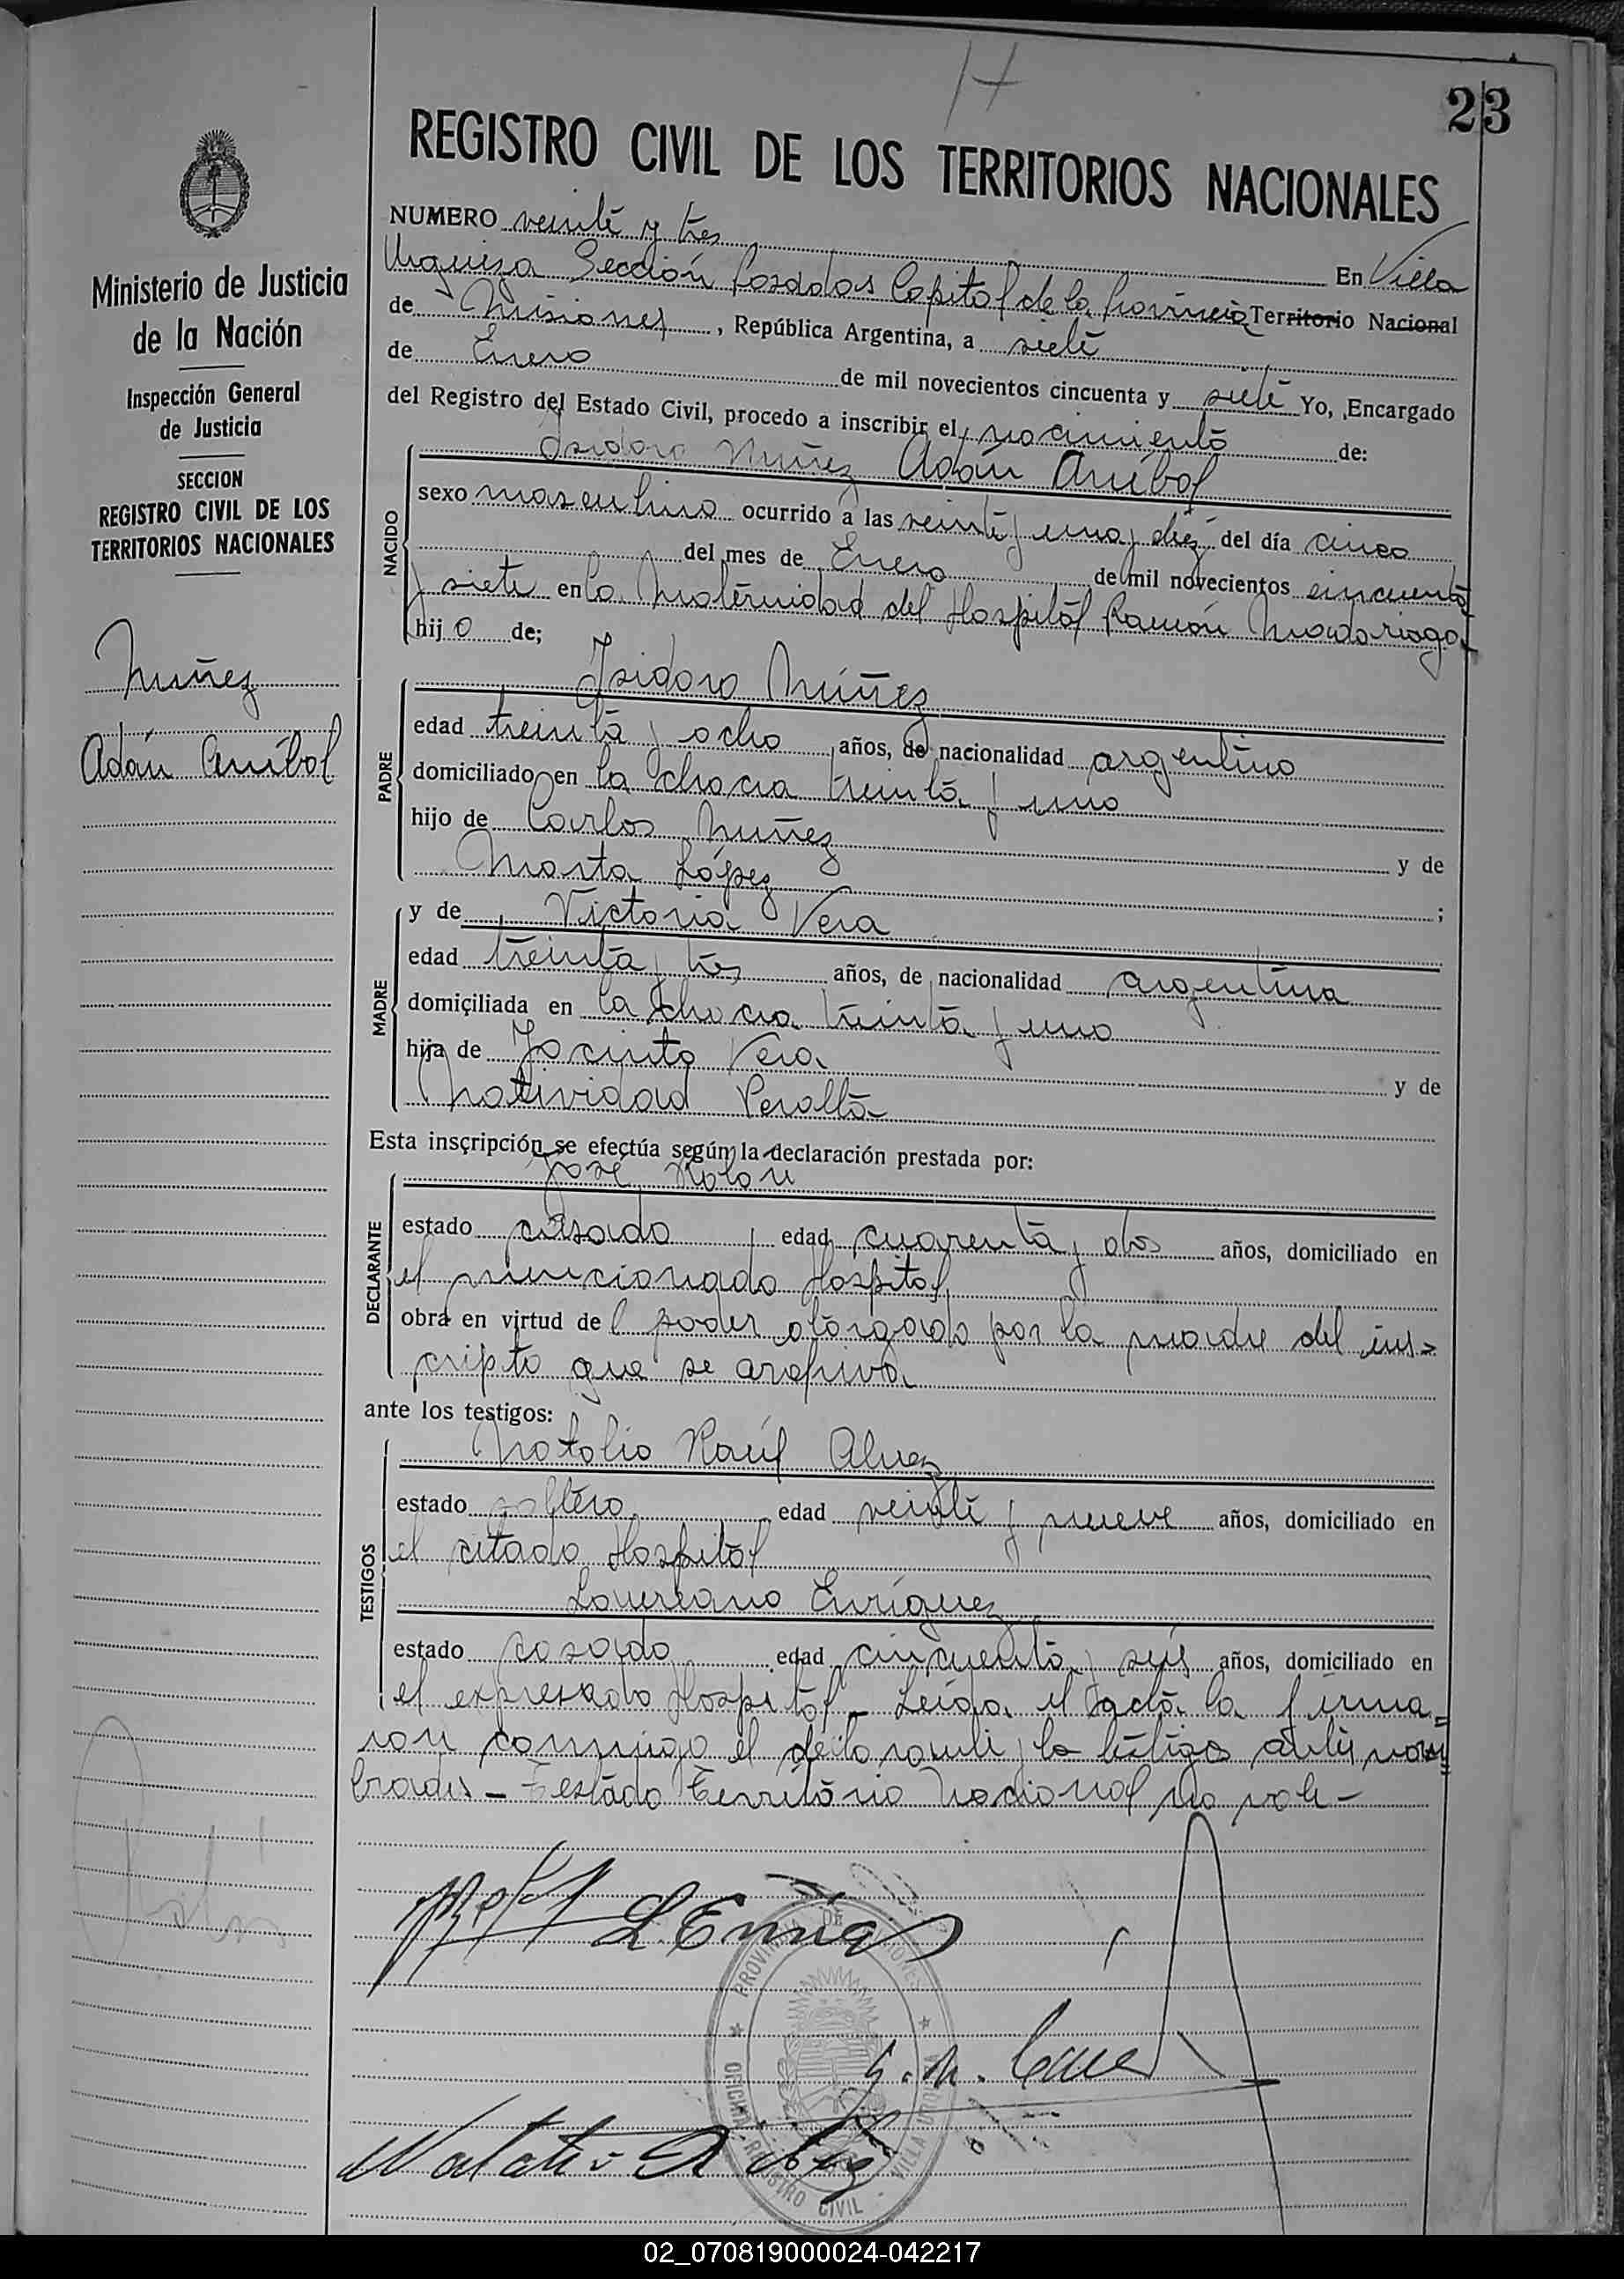 H
23
REGISTRO CIVIL DE LOS TERRITORIOS NACIONALES
Ministerio de Justicia
de la Nación
Inspección General
de Justicia
SECCION
REGISTRO CIVIL DE LOS
TERRITORIOS NACIONALES
Nuñez
Adán Aníbal
NUMERO veinte y tres En Villa
Urquiza Sección Posadas Capital de la Provincia Territorio Nacional
de Misiones, República Argentina, a siete
de Enero de mil novecientos cincuenta y siete Yo, Encargado
del Registro del Estado Civil, procedo a inscribir el nacimiento de:
Isidoro Nuñez Adán Aníbal
NACIDO
sexo masculino ocurrido a las veinte y una y diez del día cinco
del mes de Enero de mil novecientos cincuenta
y siete en la Maternidad del Hospital Ramón Madariaga
hijo de;
PADRE
Isidoro Núñez
edad treinta y ocho años, de nacionalidad argentino
domiciliado en la chacra treinta y uno
hijo de Carlos Nuñez y de
Marta López ;
MADRE
y de Victoria Vera
edad treinta y tres años, de nacionalidad argentina
domiciliada en la chacra treinta y uno
hija de Jacinto Vera y de
Natividad Peralta
Esta inscripción se efectúa según la declaración prestada por:
DECLARANTE
José Rolon
estado casado edad cuarenta y dos años, domiciliado en
el mencionado Hospital
obra en virtud del poder otorgado por la madre del ins=
cripto que se archiva
ante los testigos:
TESTIGOS
Natalio Raúl Alvez
estado soltero edad veinte y nueve años, domiciliado en
el citado Hospital
Laureano Enríquez
estado casado edad cincuenta y seis años, domiciliado en
el expresado Hospital - Leida el acta la firma=
ron conmigo el declarante y los testigos antes nom=
brados - Testado Territorio Nacional no vale -
PROVINCIA DE MISIONES
OFICINA REGISTRO CIVIL
VILLA URQUIZA
02_070819000024-042217